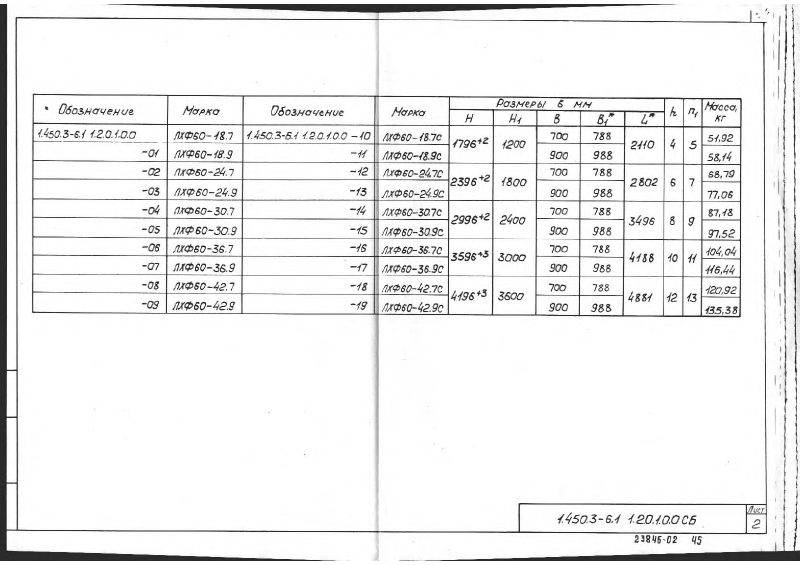 Обозначение Марка Обозначение Марка Размеры в мм h n₁ Масса, кг
H H₁ B B₁* L*
1.450.3-6.1 1.2.0.1.0.0 ЛХФ60-18.7 1.450.3-6.1 1.2.0.1.0.0 -10 ЛХФ60-18.7С 1796+2 1200 700 788 2110 4 5 51,92
-01 ЛХФ60-18.9 -11 ЛХФ60-18.9С 900 988 58,14
-02 ЛХФ60-24.7 -12 ЛХФ60-24.7С 2396+2 1800 700 788 2802 6 7 68,79
-03 ЛХФ60-24.9 -13 ЛХФ60-24.9С 900 988 77,06
-04 ЛХФ60-30.7 -14 ЛХФ60-30.7С 2996+2 2400 700 788 3496 8 9 87,18
-05 ЛХФ60-30.9 -15 ЛХФ60-30.9С 900 988 97,52
-06 ЛХФ60-36.7 -16 ЛХФ60-36.7С 3596+3 3000 700 788 4188 10 11 104,04
-07 ЛХФ60-36.9 -17 ЛХФ60-36.9С 900 988 116,44
-08 ЛХФ60-42.7 -18 ЛХФ60-42.7С 4196+3 3600 700 788 4881 12 13 120,92
-09 ЛХФ60-42.9 -19 ЛХФ60-42.9С 900 988 135,38
1.450.3-6.1 1.2.0.1.0.0 СБ
Лист
2
23846-02 45